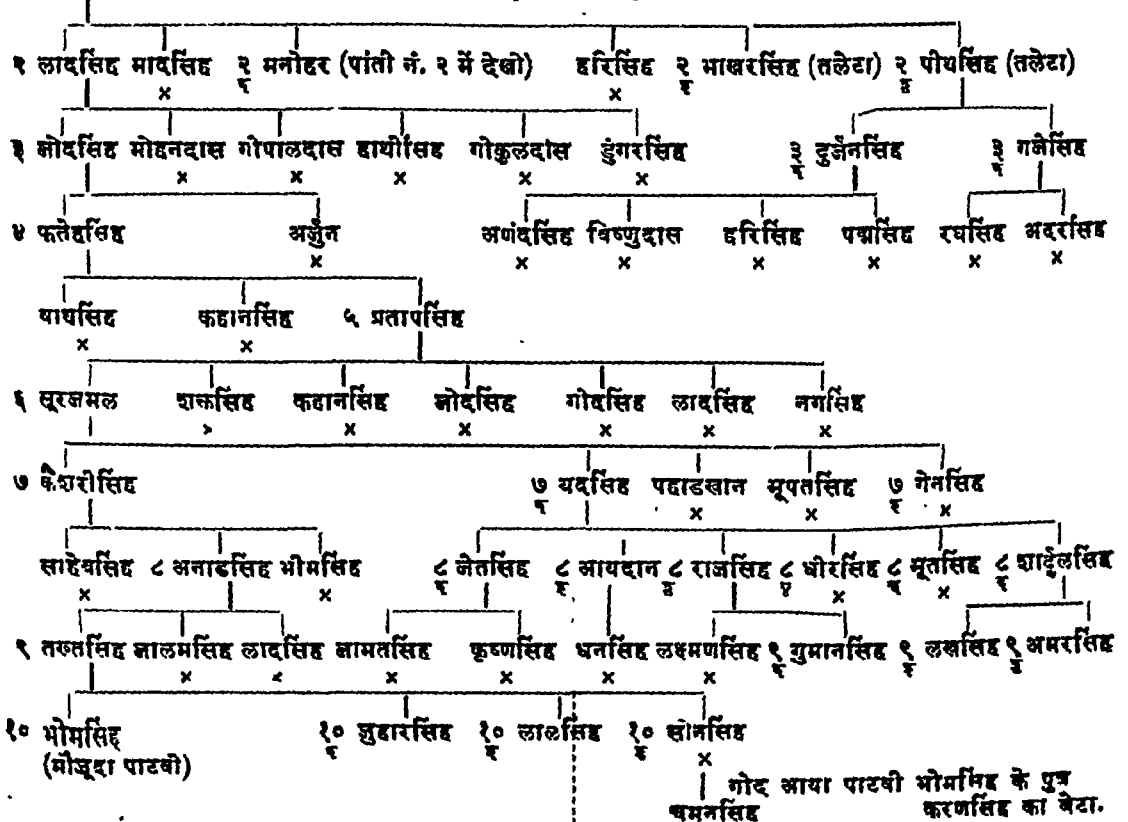 २ लादसिंह मादसिंह २/१ मनोहर (पांती नं. २ में देखो) हरिसिंह २/२ भाखरसिंह (तलेटा) २/३ पीथसिंह (तलेटा)
× ×
३ जोदसिंह मोहनदास गोपालदास हाथीसिंह गोकुलदास डुंगरसिंह ३/१ दुर्जनसिंह ३/२ गजेसिंह
× × × × ×
४ फतेहसिंह अर्जुन अणंदसिंह विष्णुदास हरिसिंह पद्मसिंह रघसिंह अदरसिंह
× × × × × × ×
वाघसिंह कहानसिंह ५ प्रतापसिंह
× ×
६ सूरजमल शक्तसिंह कहानसिंह जोदसिंह गोदसिंह लादसिंह नगसिंह
× × × × × ×
७ केशरीसिंह ७/१ यदसिंह पहाडखान भूपतसिंह ७/२ गेनसिंह
× × ×
साहेबसिंह ८ अनाडसिंह भीमसिंह ८/१ जेतसिंह ८/२ आयदान ८/३ राजसिंह ८/४ धीरसिंह ८/५ भूतसिंह ८/६ शार्दुलसिंह
× × × ×
९ तख्तसिंह जालमसिंह लादसिंह जामतसिंह कृष्णसिंह धनसिंह लक्ष्मणसिंह ९/१ गुमानसिंह ९/२ लखसिंह ९/३ अमरसिंह
× × × × × ×
१० भोमसिंह १०/१ जुहारसिंह १०/२ लालसिंह १०/३ सोनसिंह
(मौजूदा पाटवी) ×
गोद आया पाटवी भोमसिंह के पुत्र
चमनसिंह करणसिंह का बेटा.